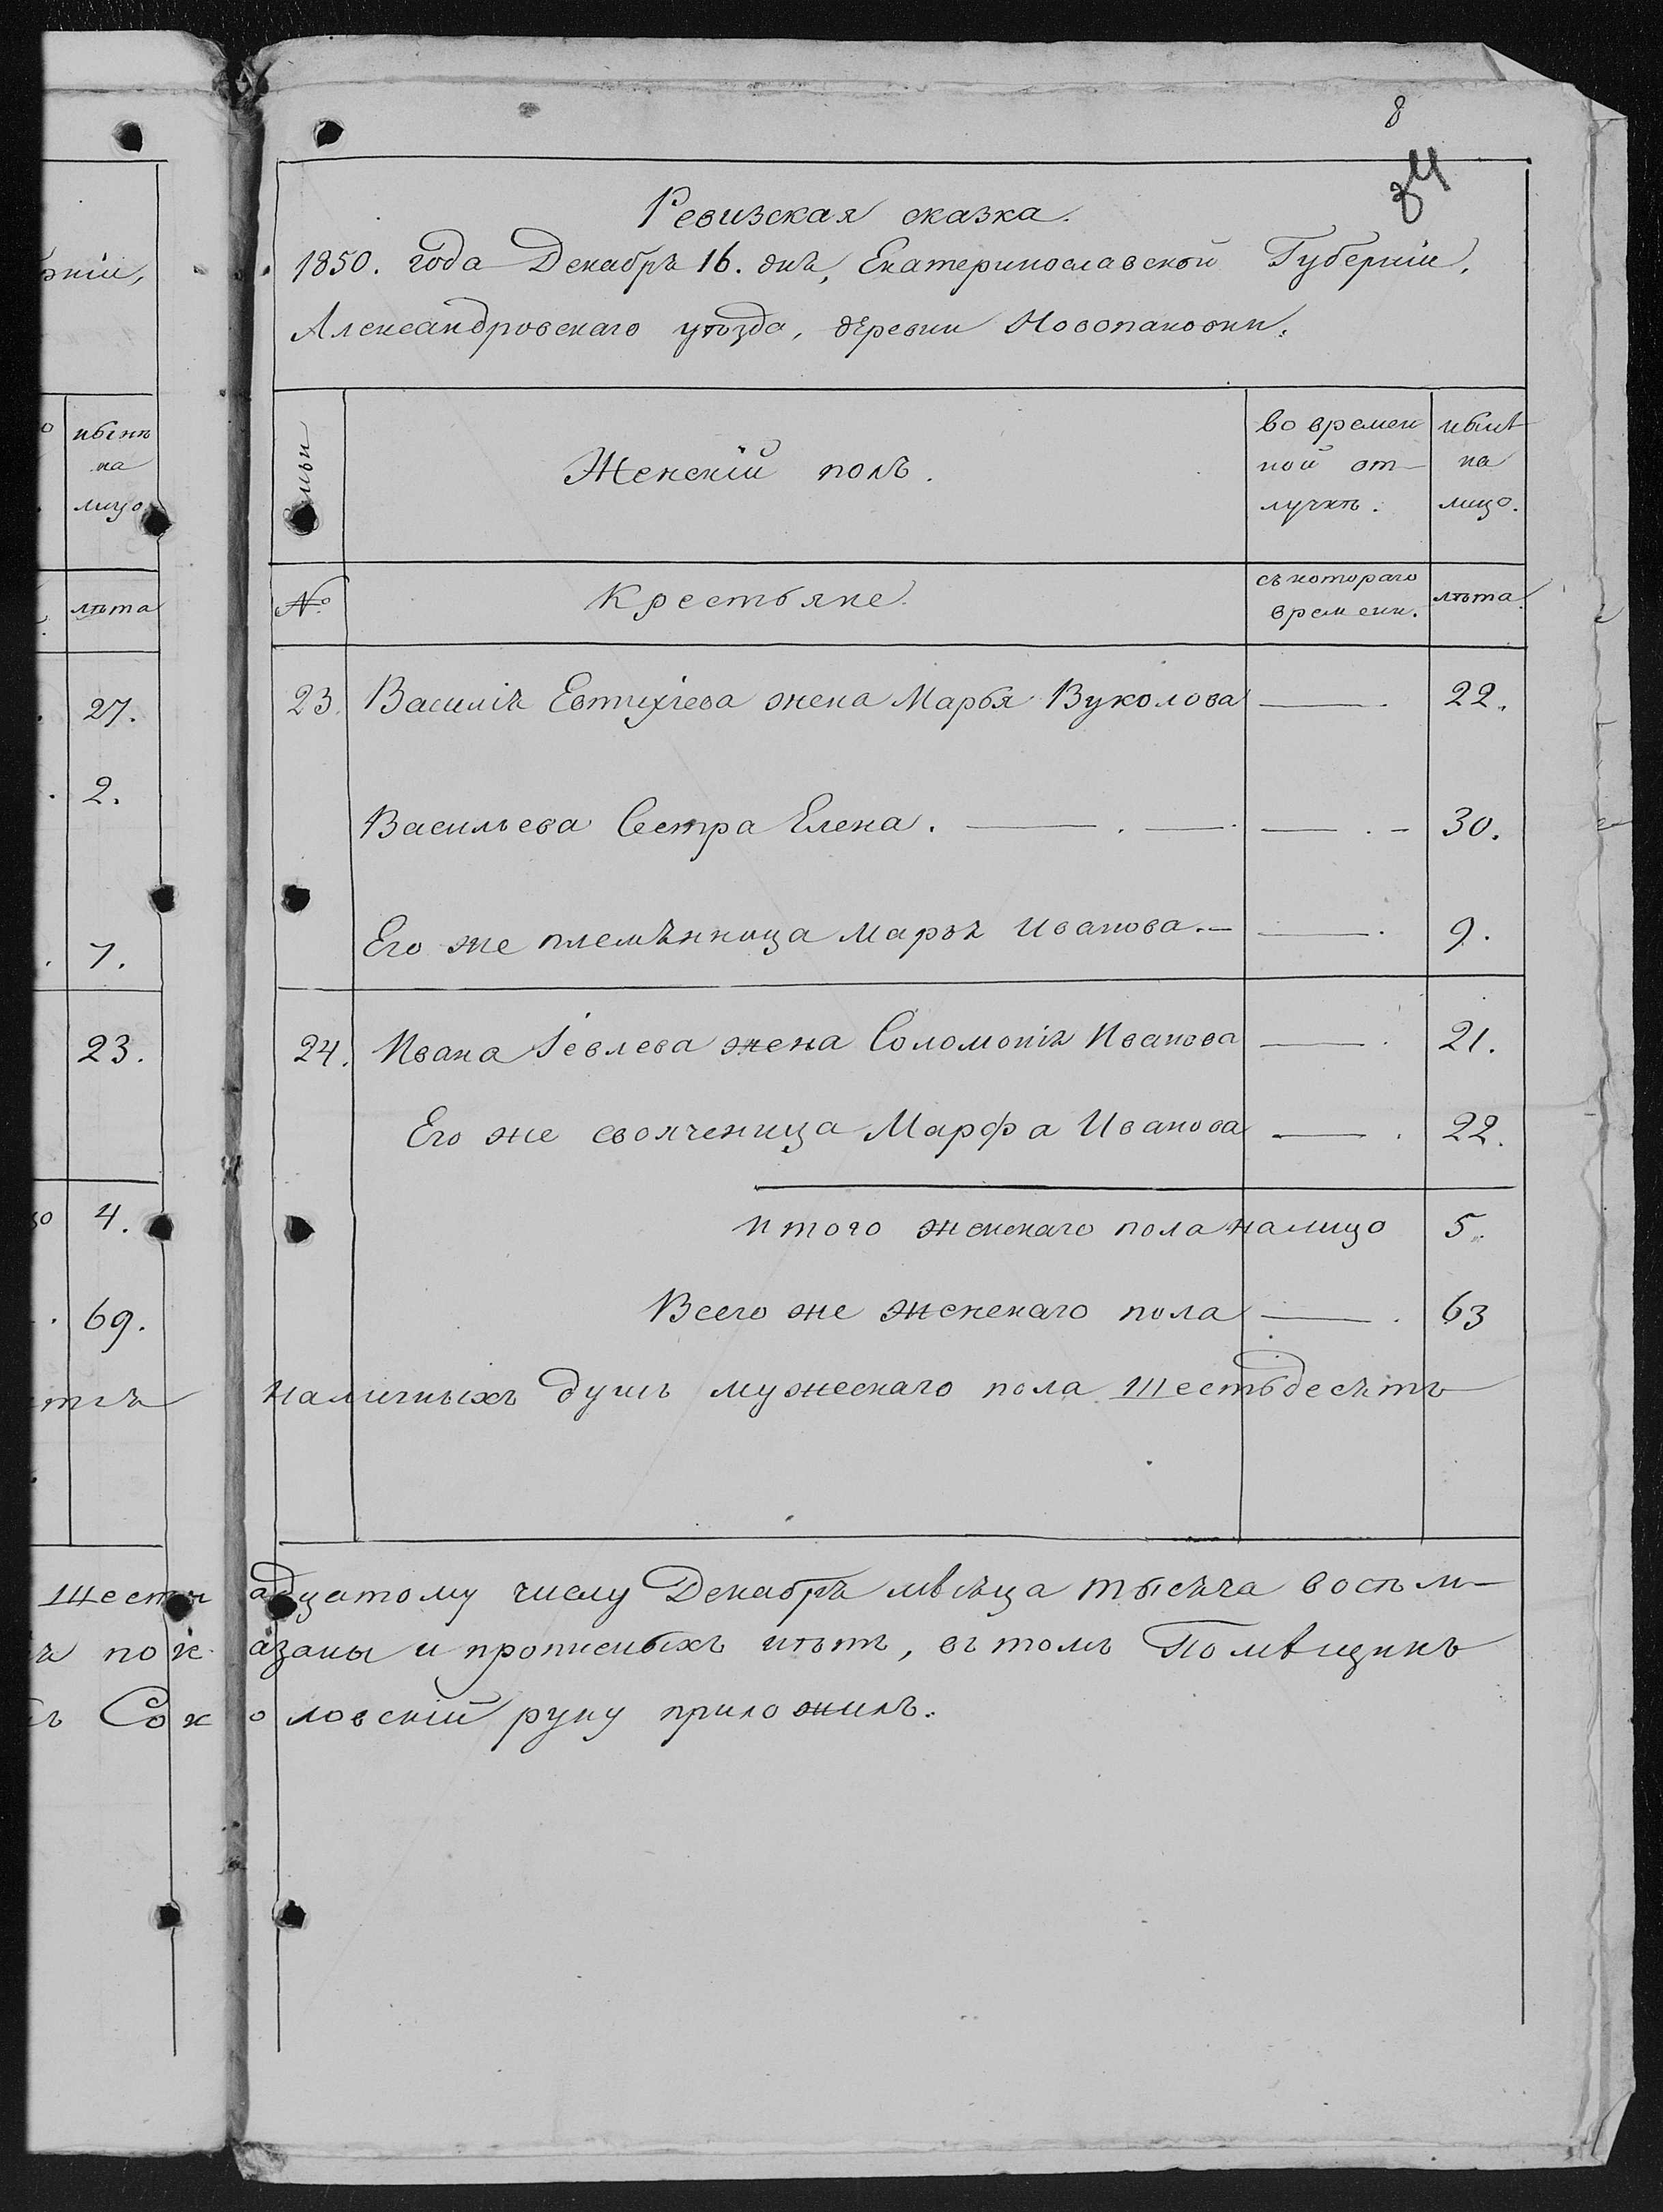 8
34
Ревизская сказка.
1850. года Декабря 16. дня, Екатеринославской Губерніи,
Александровскаго уѣзда, деревни Новопановки.
Женскій полъ.
во времен
ной от-
лучкѣ.
нынѣ
на
лицо.
№
Крестьяне.
съ котораго
времени.
лѣта.
23. Василія Евтихіева жена Марья Вуколова 22.
Васильева Сестра Елена. 30.
Его же племянница Марья Иванова. 9.
24. Ивана Іевлева жена Соломонія Иванова 21.
Его же свояченица Марфа Иванова 22.
Итого женскаго пола налицо 5.
Всего же женскаго пола 63
наличныхъ душъ мужескаго пола шестьдесятъ
адцатому числу Декабря мѣсяца тысяча восьм-
азаны и прописныхъ нѣтъ, въ томъ Помѣщикъ
оловскій руку приложилъ.
рніи,
нынѣ
на
лицо
лѣта
27.
2.
7.
23.
4.
69.
Шестн
я пок
Сок